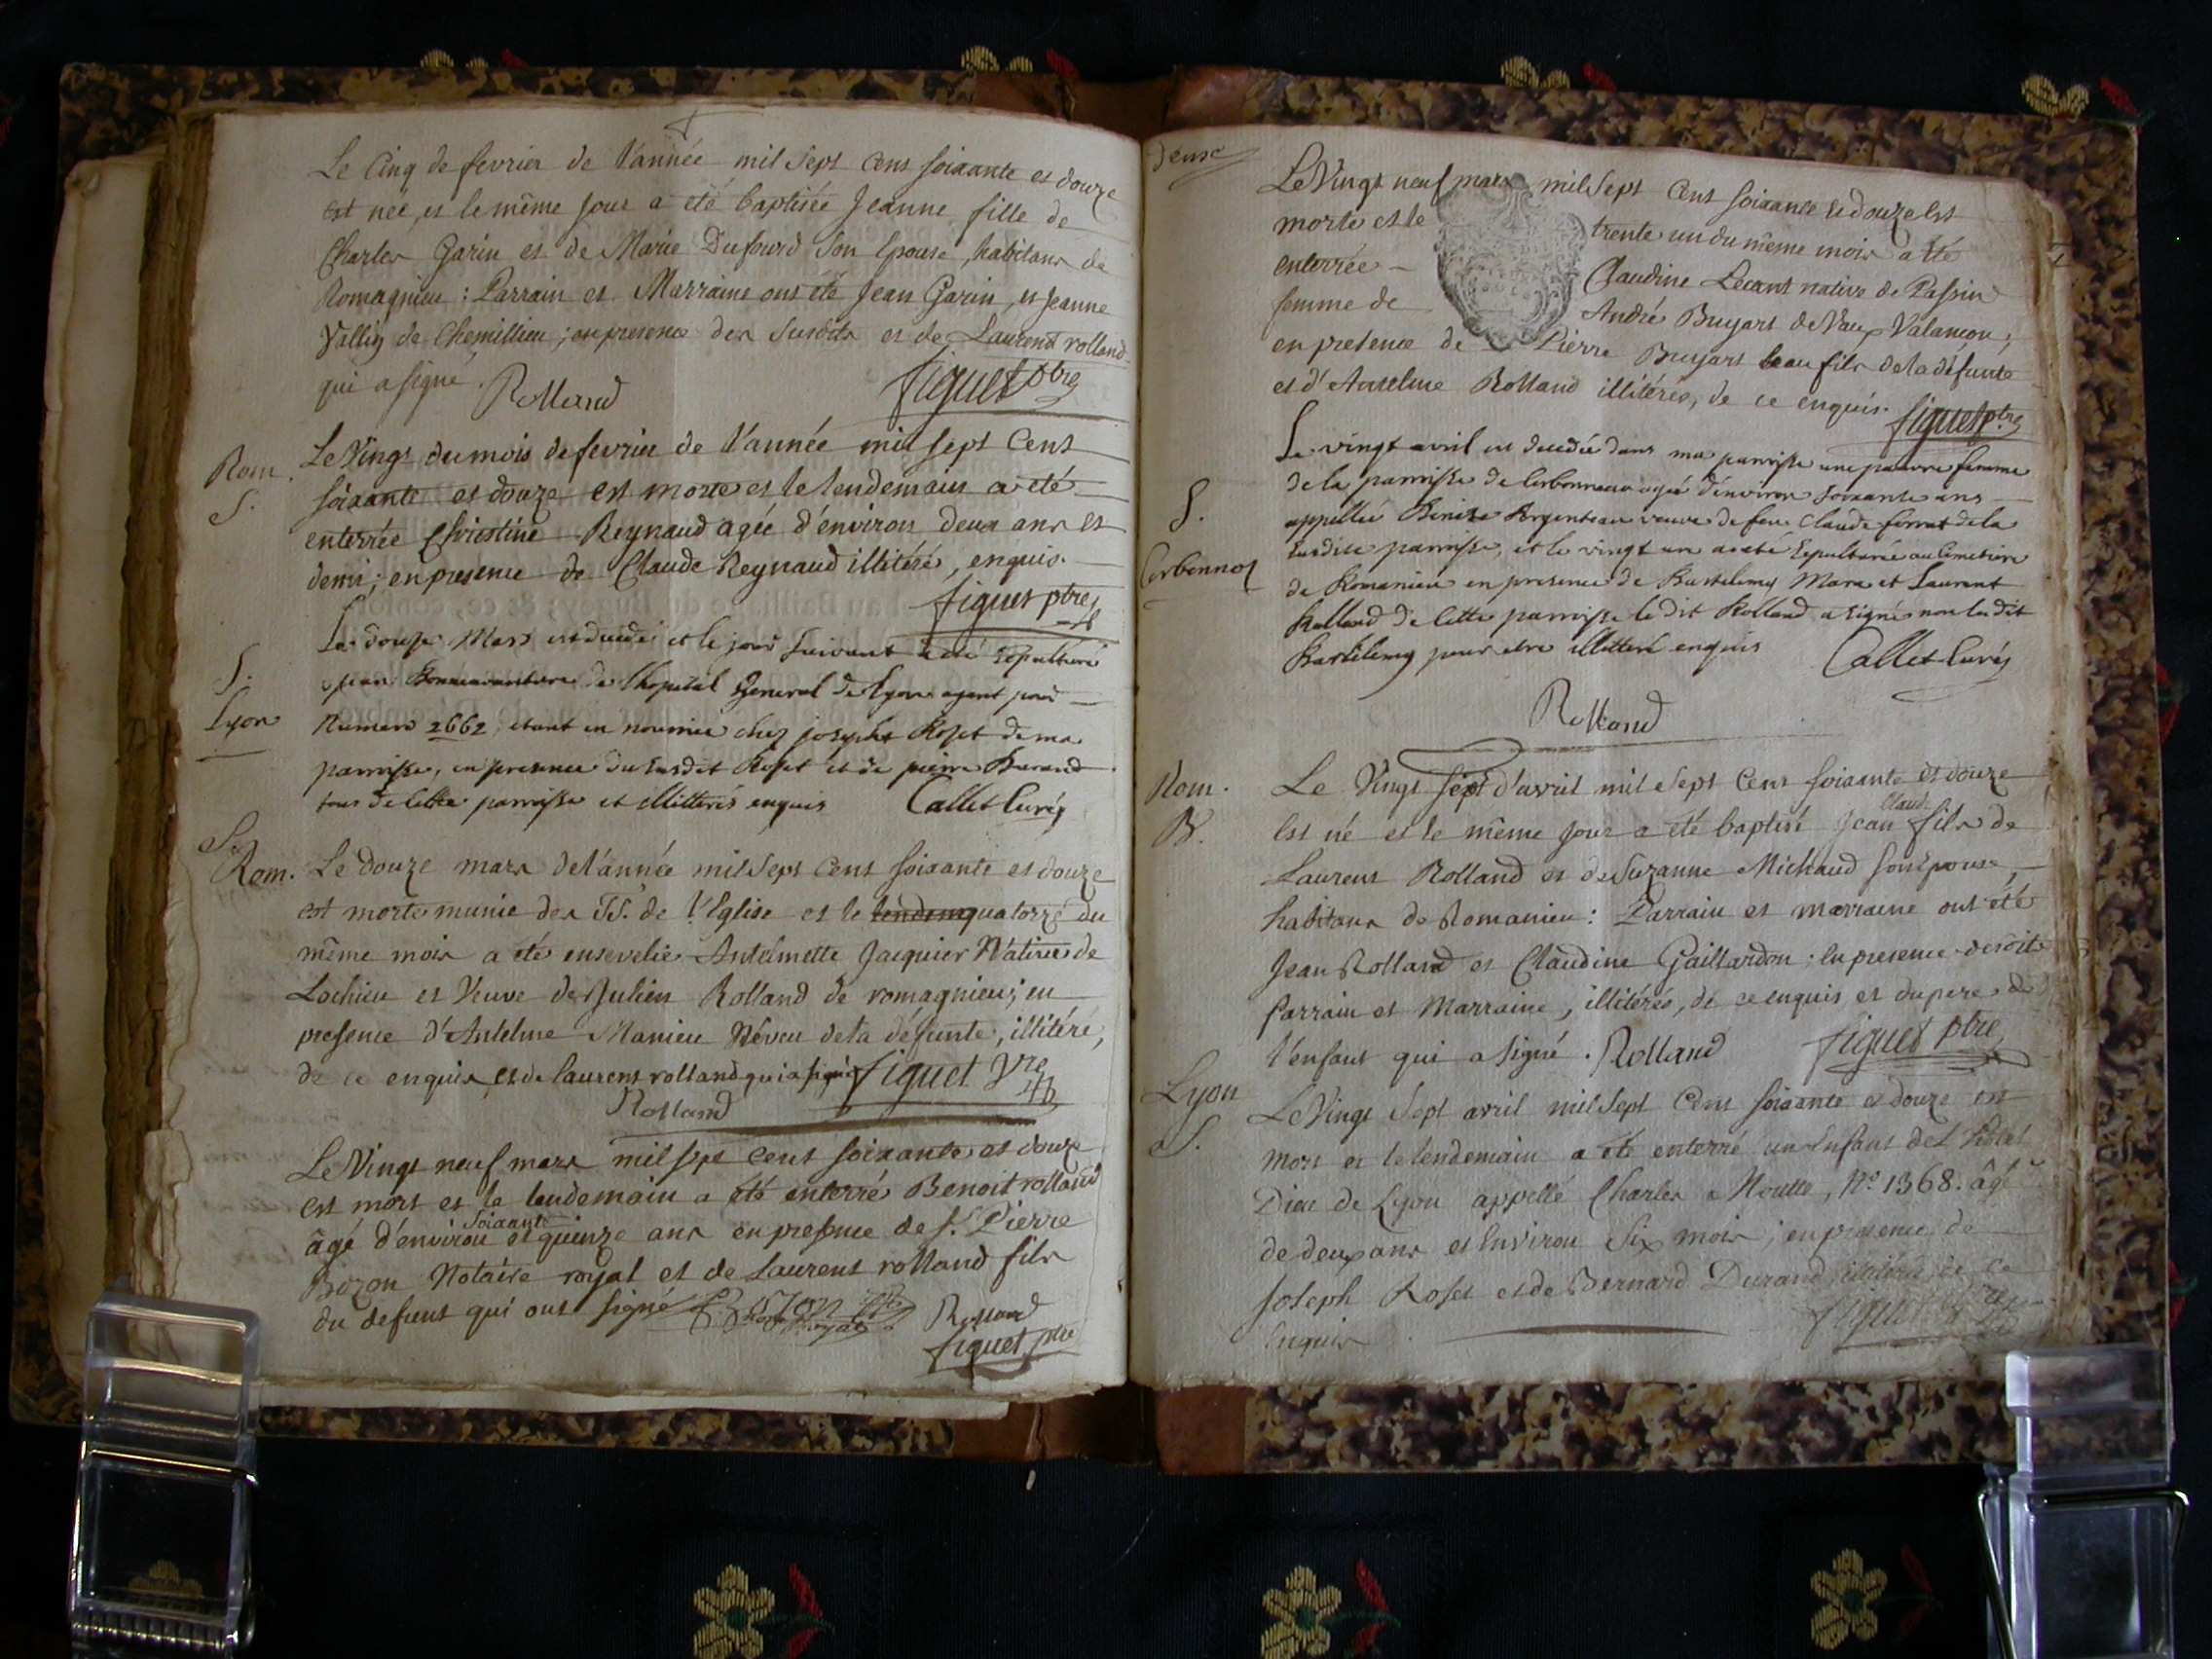 Le Cinq de fevrier de l'année mil sept cens soixante et douze
est neé, et le même jour a été baptisée Jeanne fille de
Charles Garin et de Marie Dufourd son Epouse, habitans de
Romagnieu : Parrain et Marraine ont été Jean Garin, et Jeanne
Vallin de Chemillieu ; en presence des susdits et de Laurent rolland
qui a signé. Rolland figuet ptre
Rom.
S.
Le Vingt du mois de fevrier de l'année mil sept Cens
soixante et douze est morte et le lendemain a été
enterrée Christine Reynaud agée d'environ deux ans et
demi ; en presence de Claude Reynaud illitéré, enquis.
figuet ptre
S.
Lyon
Le douze Mars est decedé et le jour suivant a été sepulturé
jean de l'hopital General de Lyon ayant pour
Numero 2662, etant en nourrice chez joseph Roset de ma
parroisse, en presence du susdit Roset et de pierre Durand
tous de cette parroisse et illitterés enquis Callet Curé
S.
Rom.
Le douze mars de l'année mil sept cens soixante et douze
est morte munie des SS. de l'Eglise et le lendem quatorze du
même mois a été ensevelie Antelmette Jacquier Native de
Lochieu et Veuve de Julien Rolland de romagnieu ; en
presence d'Antelme Manieu Néveu de la défunte, illitéré,
de ce enquis, et de laurent rolland qui a signé figuet ptre
Rolland
Le Vingt neuf mars mil sept cens soixante et douze
est mort et le lendemain a été enterré Benoit rolland
âgé d'environ soixante et quinze ans en presence de Sr. Pierre
Bozon Notaire royal et de Laurent rolland fils
du defunt qui ont signé Rolland
figuet ptre
deuxe
Le Vingt neuf mars mil sept Cens soixante et douze est
morte et le trente un du même mois a été
enterrée - Claudine Lecant native de Passin
femme de André Buyart de Vaux Valancou ;
en presence de Pierre Buyart beau fils de la défunte
et d'Antelme Rolland illitérés, de ce enquis. figuet ptre
S.
Cerbonnod
Le vingt avril est decedée dans ma parroisse une pauvre femme
de la parroisse de Cerbonnod agée d'environ soixante ans
appellée Benite Argenteau veuve de feu Claude ferrat de la
susdite parroisse, et le vingt un a eté sepulturée au Cimetiere
de Romanieu en presence de Bartelemy Mara et Laurent
Rolland de Cette parroisse le dit Rolland a signé non le dit
Bartelemy pour etre illitteré enquis Callet Curé
Rolland
Rom.
B.
Le Vingt sept d'avril mil sept Cens soixante et douze
est né et le même jour a été baptisé Jean Claude fils de
Laurent Rolland et de Suzanne Michaud son Epouse,
habitans de Romanieu : Parrain et marraine ont été
Jean Rolland et Claudine Gaillardon ; en presence desdits
Parrain et Marraine, illitérés, de ce enquis et du pere de
l'enfant qui a signé. Rolland figuet ptre
Lyon
S.
Le Vingt Sept avril mil sept Cens soixante et douze est
mort et le lendemain a été enterré un Enfant de l'hôtel
Dieu de Lyon appellé Charles Moutte, No. 1368. âgé
de deux ans et Environ Six mois ; en presence de
Joseph Roset et de Bernard Durand illitérés, de ce
Enquis. figuet